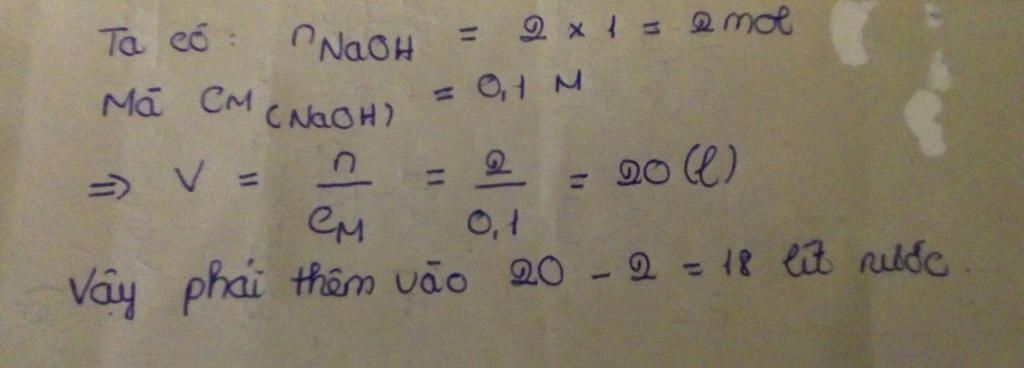 Ta có: nNaOH = 2 x 1 = 2 mol
Mà CM(NaOH) = 0,1 M
=> V = n/CM = 2/0,1 = 20 (l)
Vậy phải thêm vào 20 - 2 = 18 lít nước.